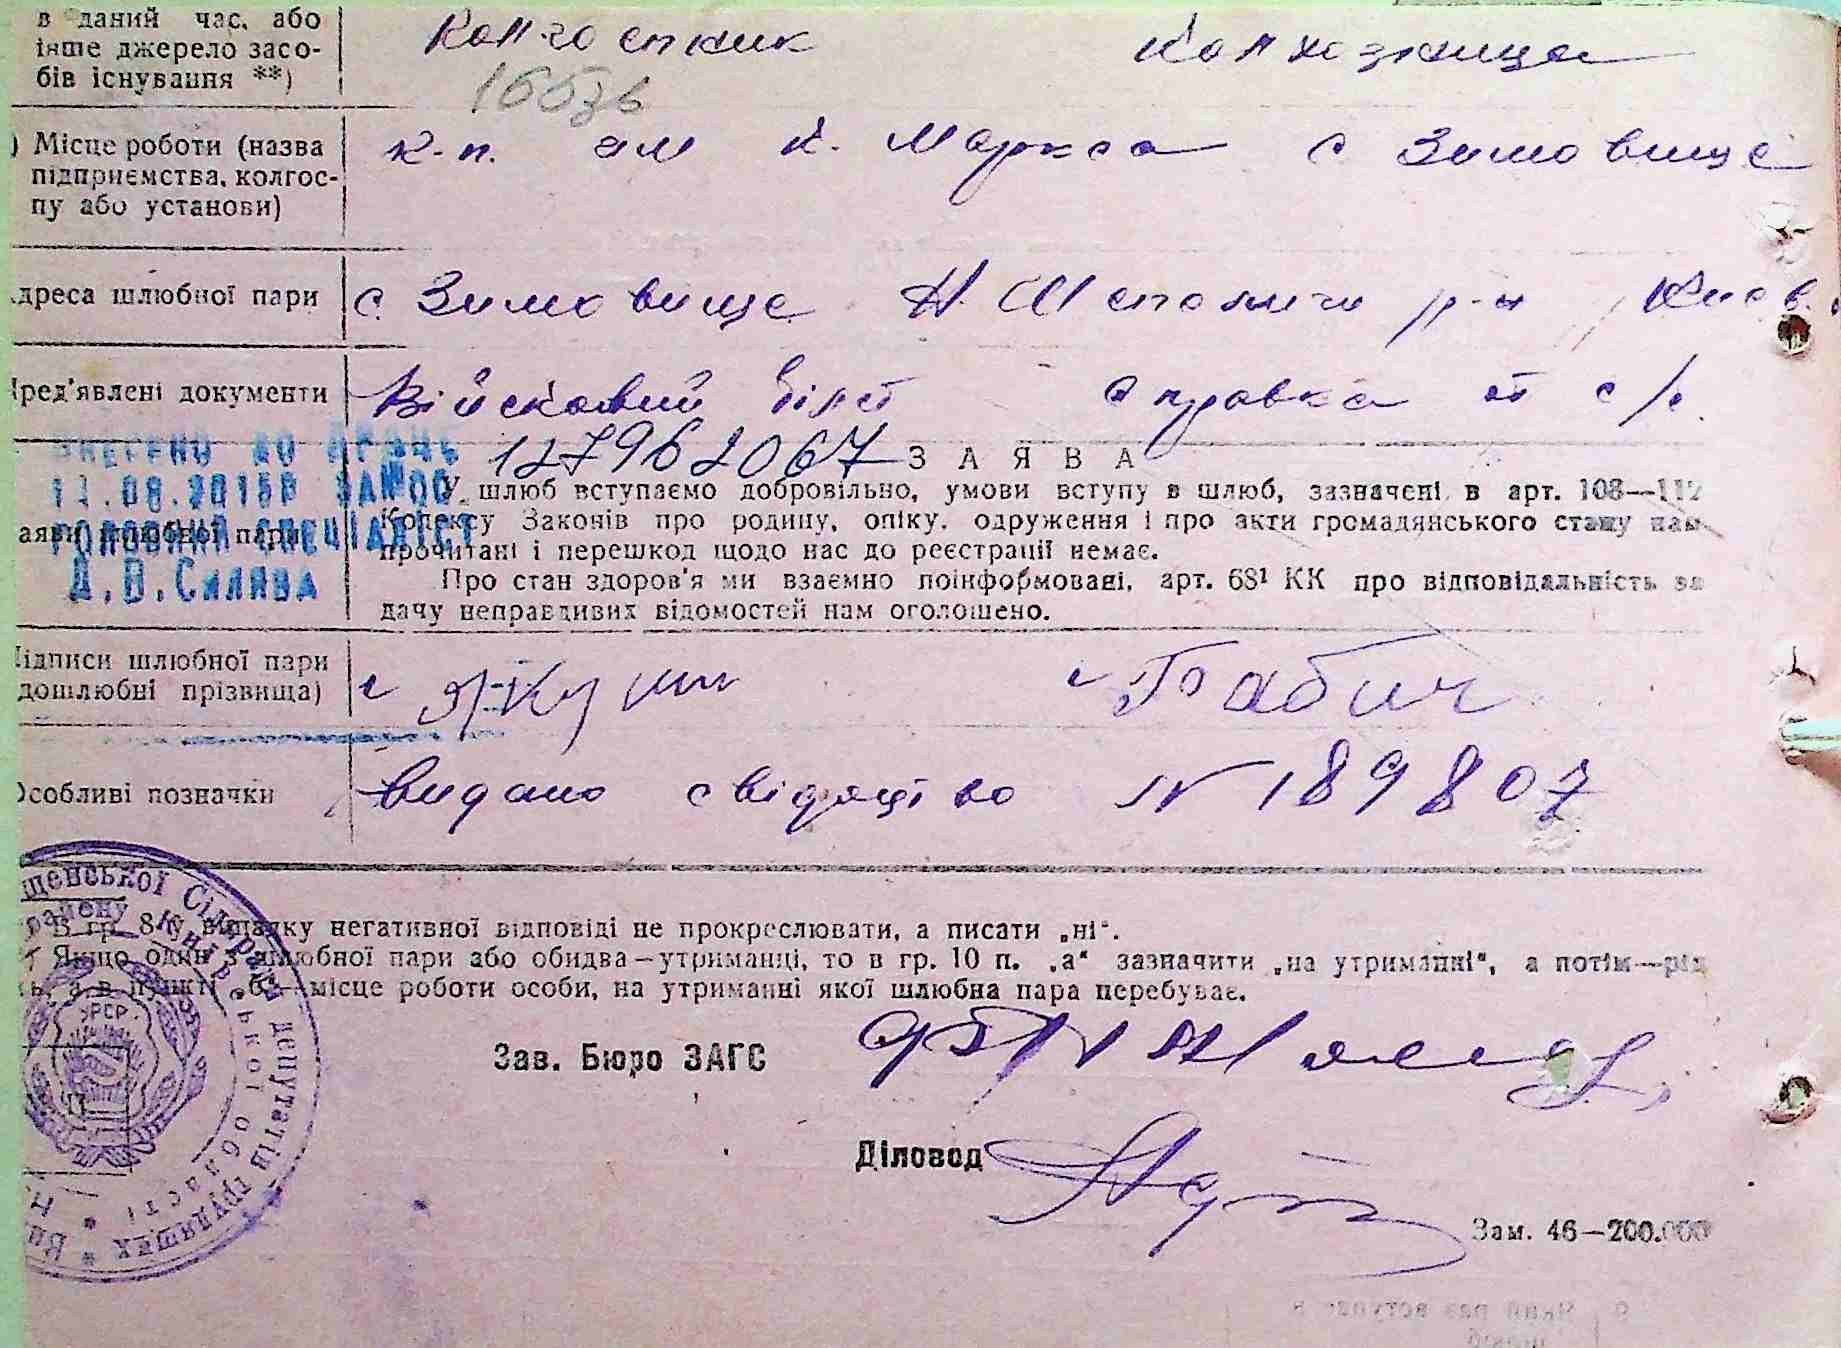 в даний час, або
інше джерело засо-
бів існування **)
Колгоспник Колхозница
) Місце роботи (назва
підприємства, колгос-
пу або установи)
к-п. им К. Маркса с Зимовище
дреса шлюбної пари
с. Зимовище Н. Шепеличи р-н Києв.
ред'явлені документи
Військовий білет Справка от с/с.
ВНЕСЕНО ДО ДРАЦС
11.08.2015р ЗАПОС
ГОЛОВНИЙ СПЕЦІАЛІСТ
Д.В.Силива
аяви шлюбної пари
127962067
ЗАЯВА
У шлюб вступаємо добровільно, умови вступу в шлюб, зазначені в арт. 108—112
Кодексу Законів про родину, опіку, одруження і про акти громадянського стану нам
прочитані і перешкод щодо нас до реєстрації немає.
Про стан здоров'я ми взаємно поінформовані, арт. 68¹ КК про відповідальність за
дачу неправдивих відомостей нам оголошено.
ідписи шлюбної пари
дошлюбні прізвища)
Бабич
Особливі позначки
Видано свідоцтво № 189807
В гр. 8 у випадку негативної відповіді не прокреслювати, а писати „ні“.
Якщо один з шлюбної пари або обидва—утриманці, то в гр. 10 п. „а“ зазначити „на утриманні“, а потім—рід
ь, а в пункті „б“—місце роботи особи, на утриманні якої шлюбна пара перебуває.
щенської Сільради депутатів трудящих
району Київської області
УРСР
Зав. Бюро ЗАГС
Діловод
Зам. 46—200.000
9 Який раз вступає в
шлюб